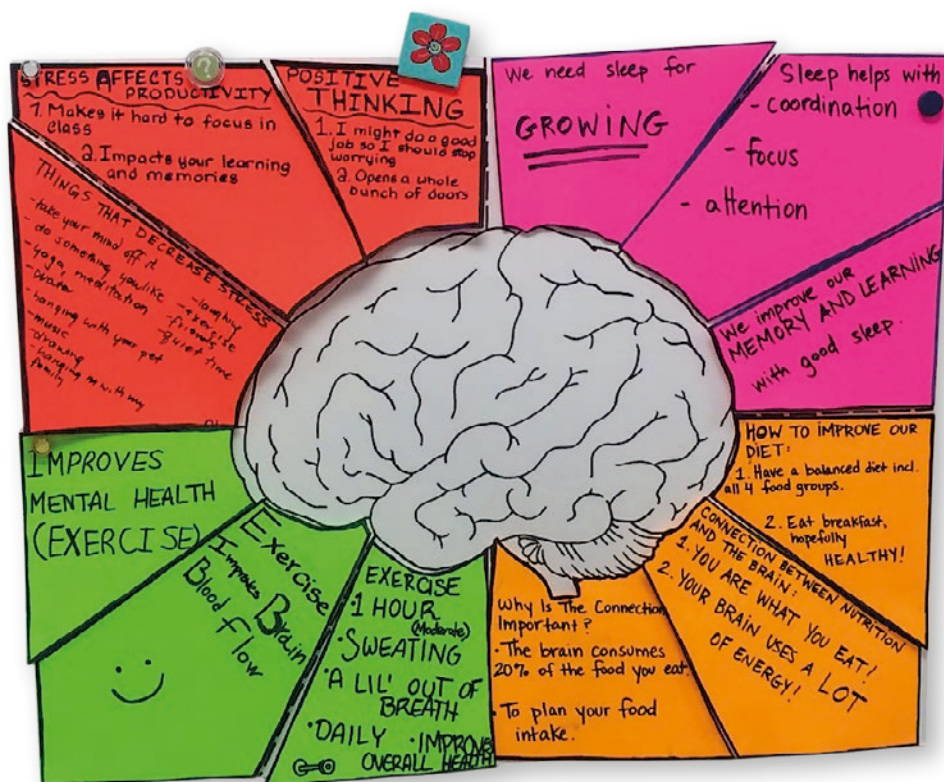 STRESS AFFECTS
PRODUCTIVITY
1. Makes it hard to focus in
class
2. Impacts your learning
and memories
POSITIVE
THINKING
1. I might do a good
job so I should stop
worrying
2. Opens a whole
bunch of doors
We need sleep for
GROWING
Sleep helps with
- coordination
- focus
- attention
THINGS THAT DECREASE STRESS
- take your mind off it
do something you like
- yoga, meditation
- hanging with your pet
- music
- drawing
- hanging with my
family
- laughing
- exercise
- friends
- quiet time
We improve our
MEMORY AND LEARNING
with good sleep.
IMPROVES
MENTAL HEALTH
(EXERCISE)
Exercise
Improves Brain
Blood flow
EXERCISE
1 HOUR
(Moderate)
• SWEATING
• 'A LIL' OUT OF
BREATH
• DAILY • IMPROVE
OVERALL HEALTH
Why Is The Connection
Important?
• The brain consumes
20% of the food you eat.
• To plan your food
intake.
CONNECTION BETWEEN NUTRITION
AND THE BRAIN:
1. YOU ARE WHAT YOU EAT!
2. YOUR BRAIN USES A LOT
OF ENERGY!
HOW TO IMPROVE OUR
DIET:
1. Have a balanced diet incl.
all 4 food groups.
2. Eat breakfast,
hopefully
HEALTHY!
?